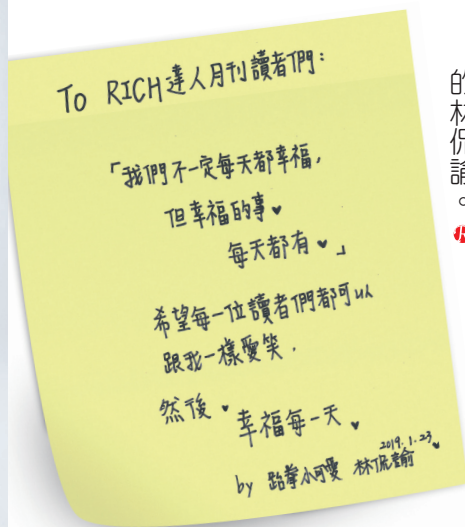 To RICH達人月刊讀者們：
「我們不一定每天都幸福，
但幸福的事♥
每天都有♥」
希望每一位讀者們都可以
跟我一樣愛笑．
然後♥幸福每一天♥
2019.1.23
by 跆拳小可愛 林侃諭♥
的林侃諭。